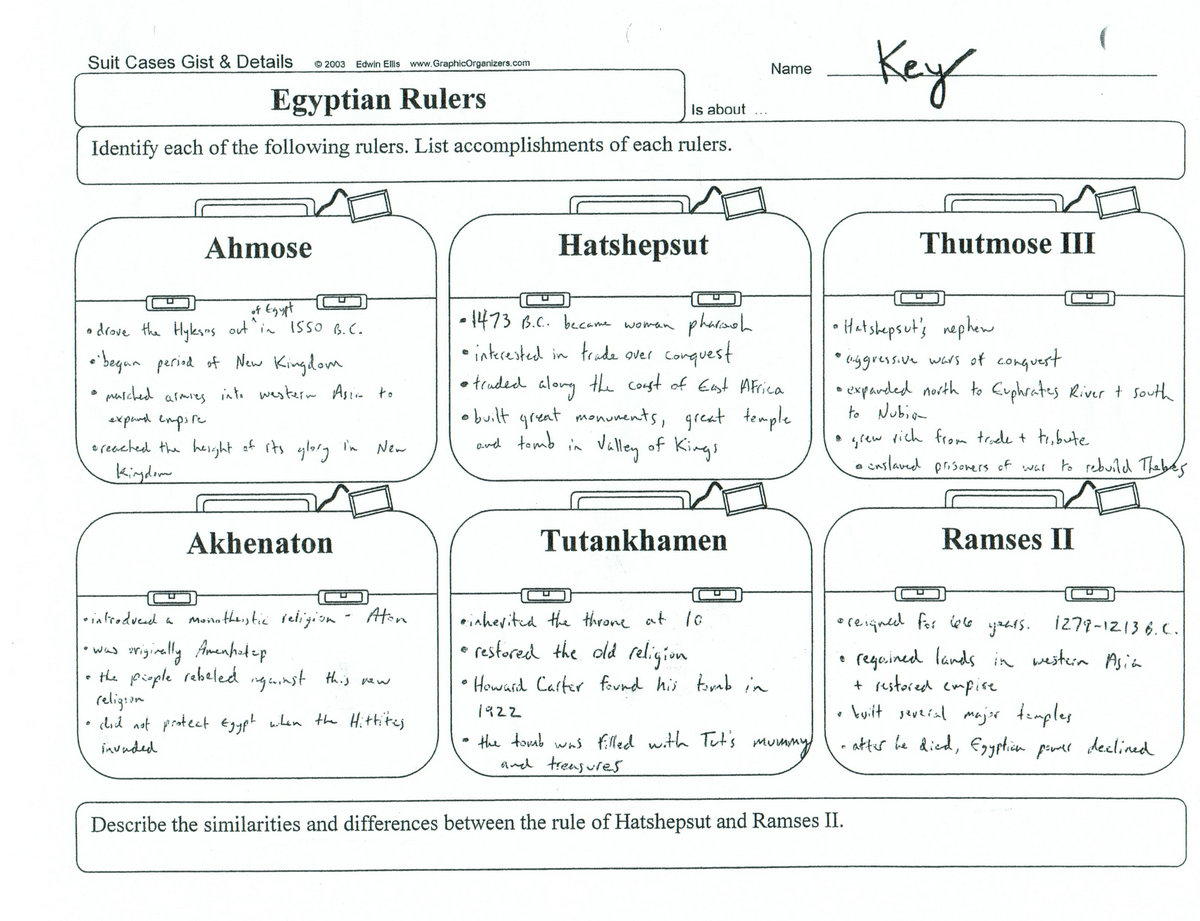 Suit Cases Gist & Details © 2003 Edwin Ellis www.GraphicOrganizers.com
Name Key
Egyptian Rulers
Is about ...
Identify each of the following rulers. List accomplishments of each rulers.
Ahmose
• drove the Hyksos out of Egypt in 1550 B.C.
• began period of New Kingdom
• marched armies into western Asia to
expand empire
• reached the height of its glory in New
Kingdom
Hatshepsut
• 1473 B.C. became woman pharaoh
• interested in trade over conquest
• traded along the coast of East Africa
• built great monuments, great temple
and tomb in Valley of Kings
Thutmose III
• Hatshepsut's nephew
• aggressive wars of conquest
• expanded north to Euphrates River + south
to Nubia
• grew rich from trade + tribute
• enslaved prisoners of war to rebuild Thebes
Akhenaton
• introduced a monotheistic religion - Aton
• was originally Amenhotep
• the people rebeled against this new
religion
• did not protect Egypt when the Hittites
invaded
Tutankhamen
• inherited the throne at 10
• restored the old religion
• Howard Carter found his tomb in
1922
• the tomb was filled with Tut's mummy
and treasures
Ramses II
• reigned for 66 years. 1279-1213 B.C.
• regained lands in western Asia
+ restored empire
• built several major temples
• after he died, Egyptian power declined
Describe the similarities and differences between the rule of Hatshepsut and Ramses II.